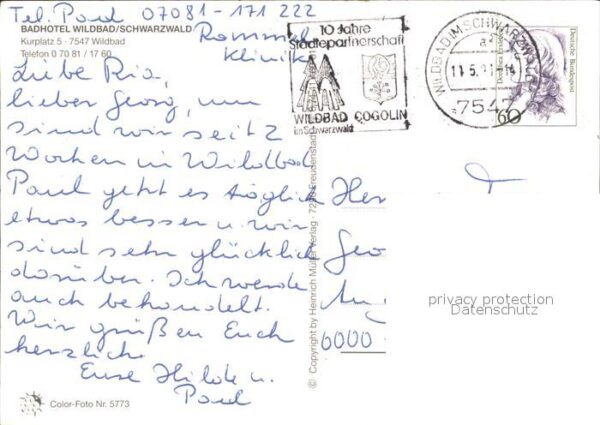 Tel. Paul 07081-171 222
BADHOTEL WILDBAD/SCHWARZWALD
Kurplatz 5 · 7547 Wildbad
Telefon 0 70 81 / 17 60
Rommel
Klinik
Liebe Ria,
lieber Georg, nun
sind wir seit 2
Wochen in Wildbad
Paul geht es täglich
etwas besser u. wir
sind sehr glücklich
darüber. Ich werde
auch behandelt.
Wir grüßen Euch
herzlich
Eure Hilde u.
Paul
Color-Foto Nr. 5773
© Copyright by Heinrich Müller Verlag · Freudenstadt
10 Jahre
Städtepartnerschaft
WILDBAD COGOLIN
im Schwarzwald
WILDBAD IM SCHWARZWALD
a
11.5.
7547
60
Deutsche Bundespost
Her
Geo
6000
privacy protection
Datenschutz